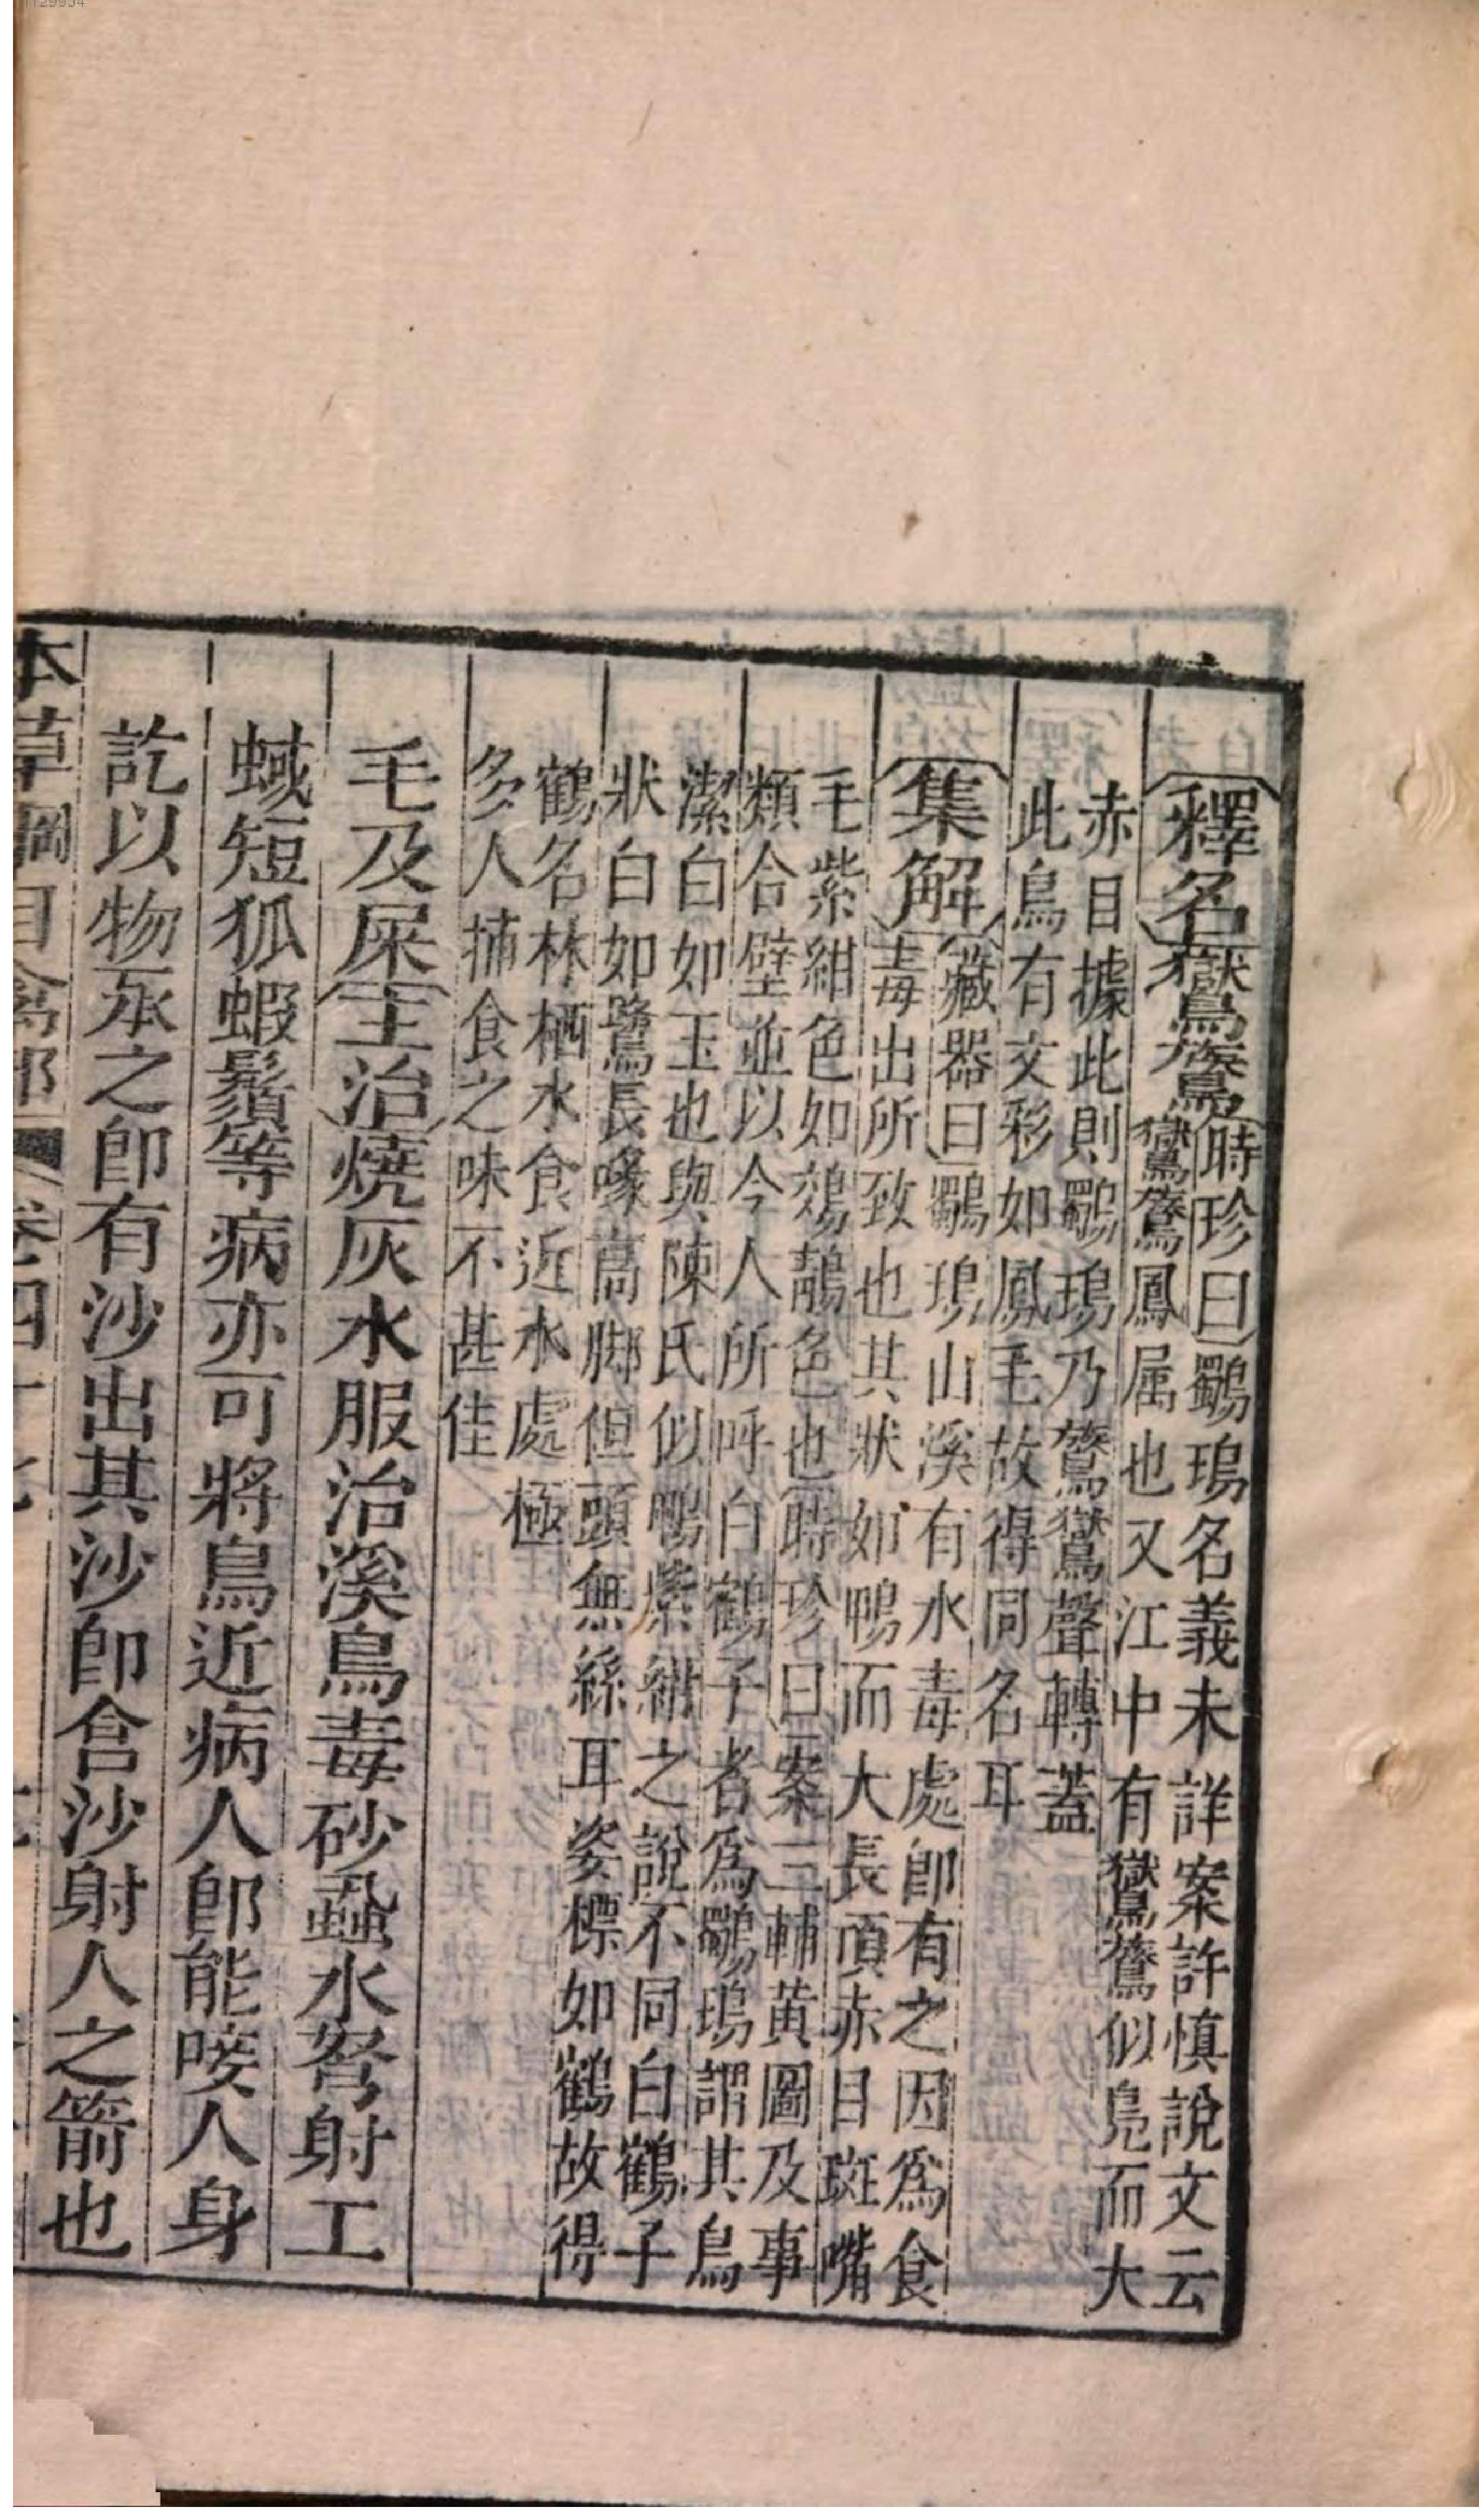 釋名鸑鷟時珍曰鸀瑦名義未詳案許慎說文云
鸑鷟鳳屬也又江中有鸑鷟似鳧而大
赤目據此則鸀瑦乃鷟鸑聲轉蓋
此鳥有文彩如鳳毛故得同名耳
集解藏器曰鸀瑦山溪有水毒處即有之因爲食
毒出所致也其狀如鴨而大長項赤目斑嘴
毛紫紺色如鵁鶄色也時珍曰案三輔黃圖及事
類合璧並以今人所呼白鶴子者爲鸀瑦謂其鳥
潔白如玉也與陳氏似鴨紫紺之說不同白鶴子
狀白如鷺長喙高脚但頭無絲耳姿標如鶴故得
鶴名林栖水食近水處極
多人捕食之味不甚佳
毛及屎主治燒灰水服治溪鳥毒砂蝨水弩射工
蜮短狐蝦鬚等病亦可將鳥近病人即能唼人身
訖以物承之即有沙出其沙即含沙射人之箭也
本草綱目禽部 卷四十七